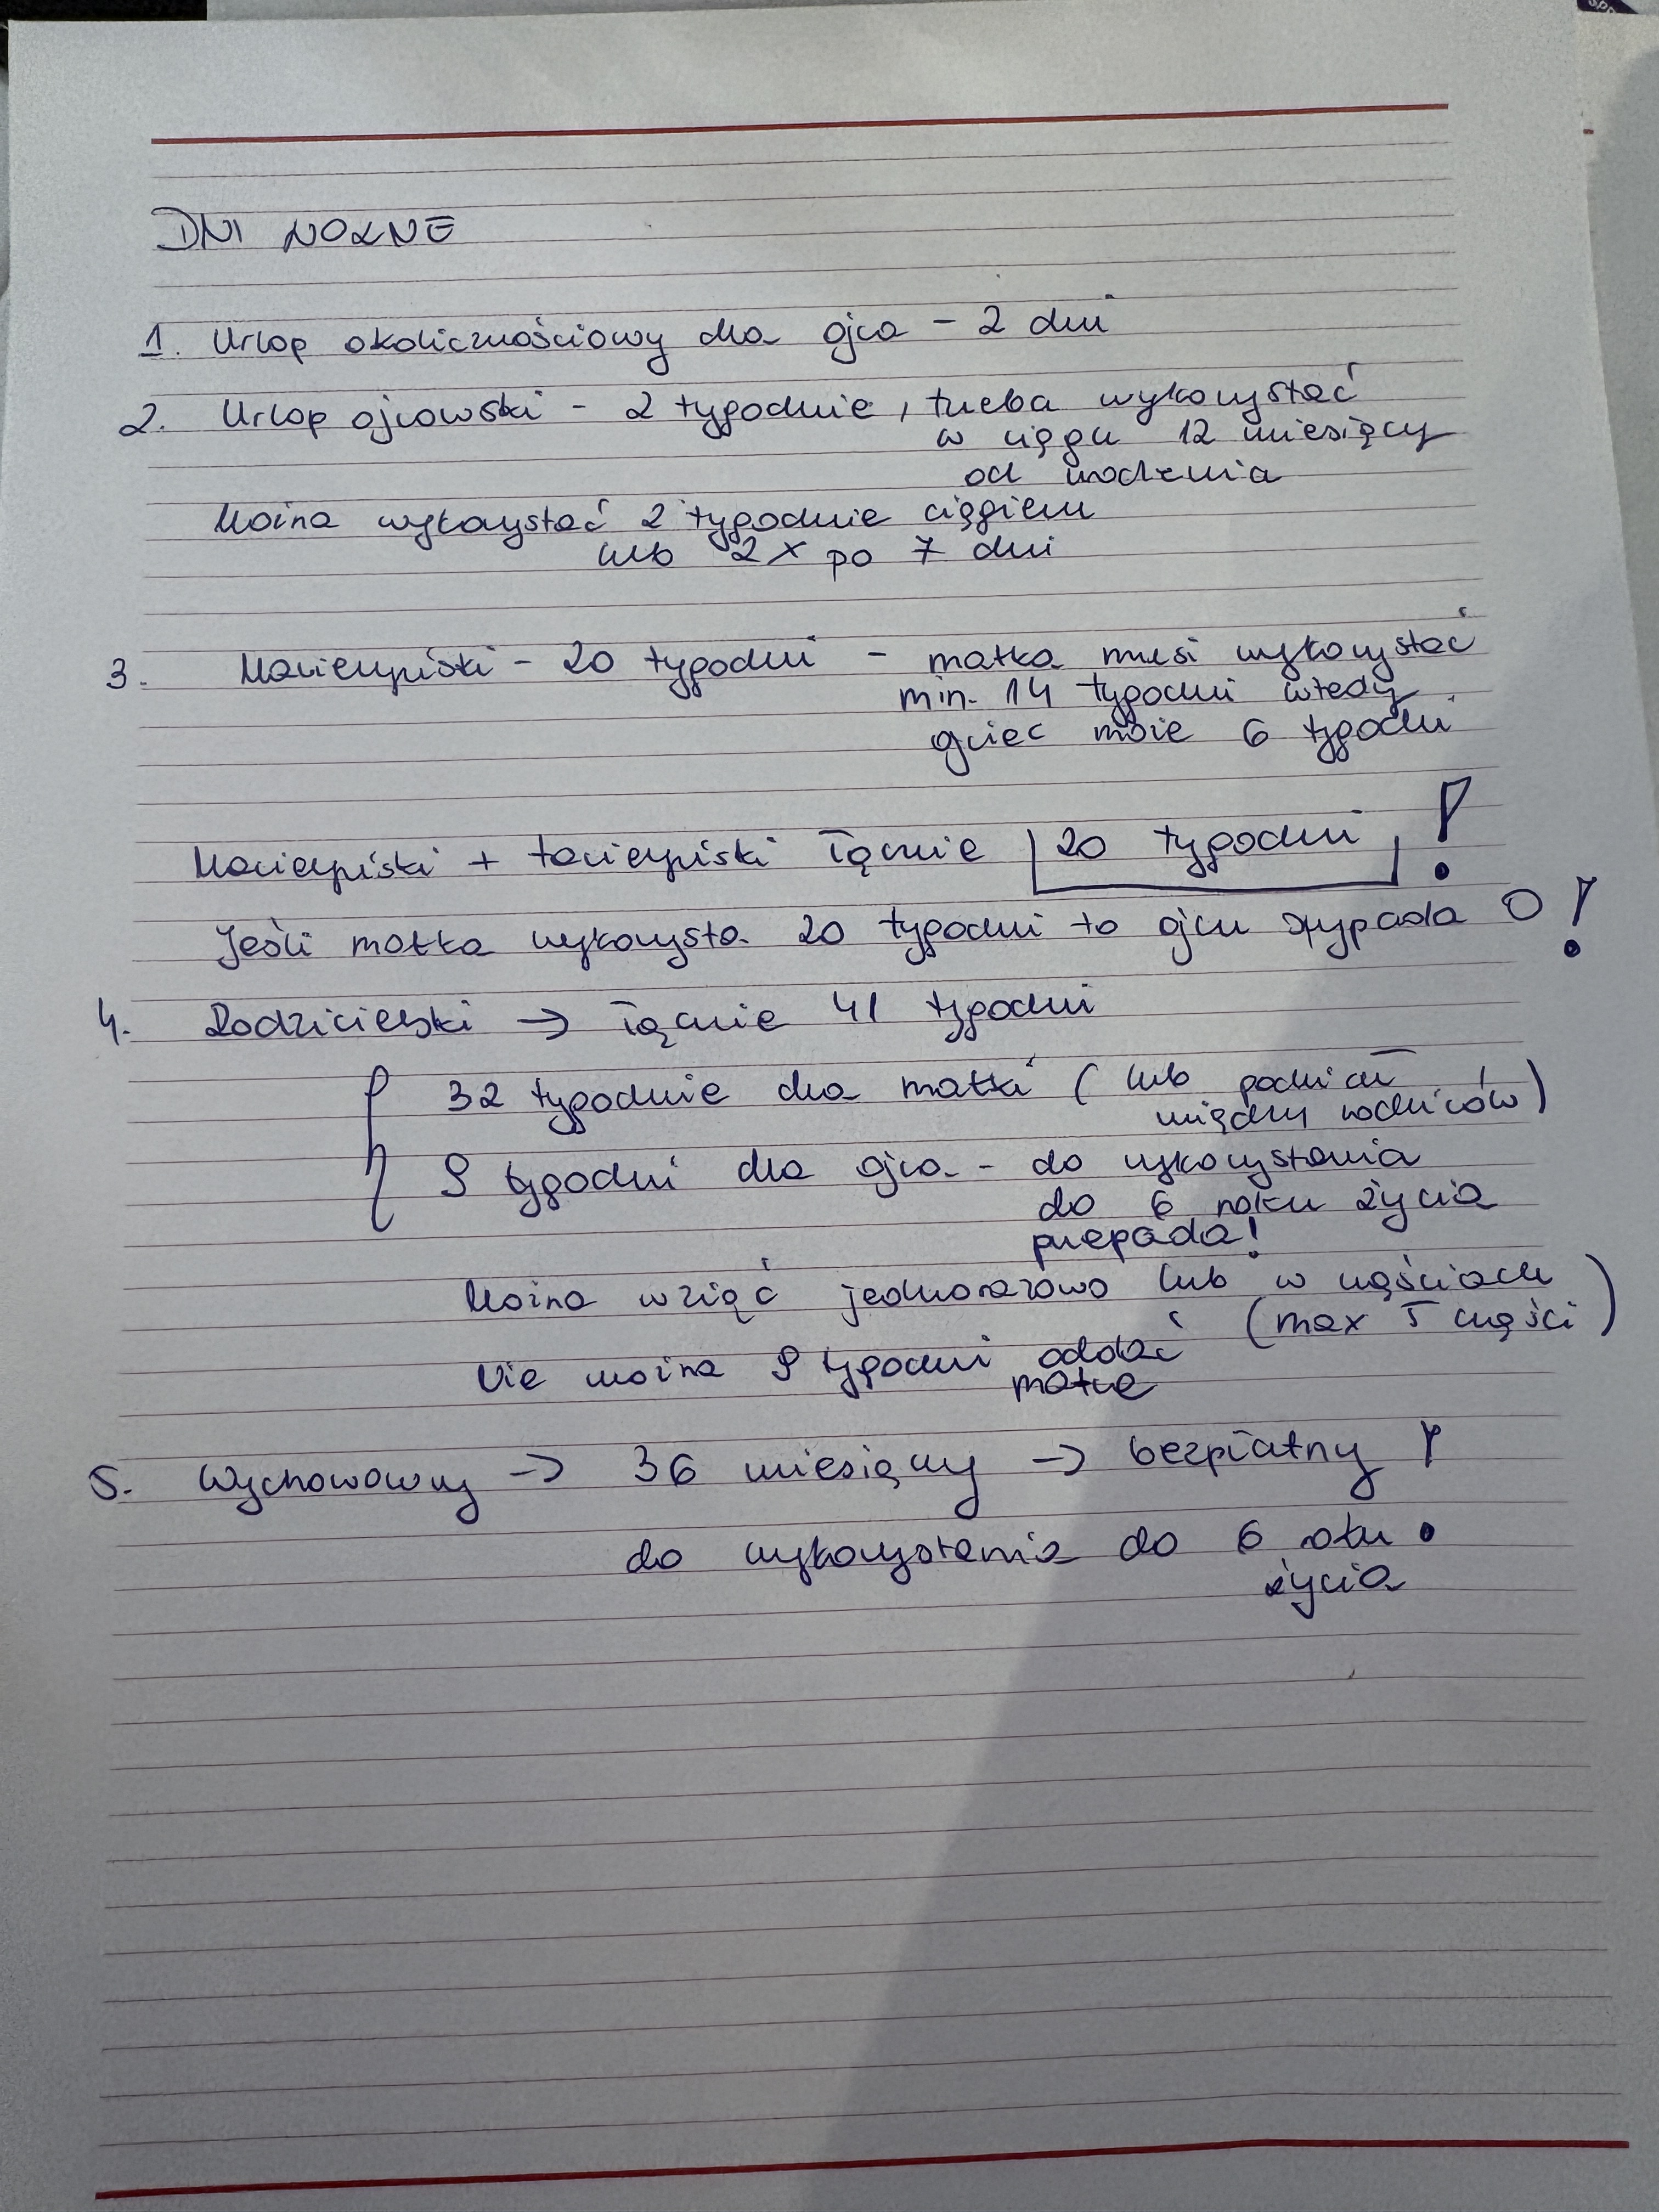 DNI WOLNE
1. Urlop okolicznościowy dla ojca - 2 dni
2. Urlop ojcowski - 2 tygodnie, trzeba wykorzystać
w ciągu 12 miesięcy
od urodzenia
Można wykorzystać 2 tygodnie ciągiem
lub 2x po 7 dni
3. Macierzyński - 20 tygodni - matka musi wykorzystać
min. 14 tygodni wtedy
ojciec może 6 tygodni
Macierzyński + tacierzyński łącznie 20 tygodni !
Jeśli matka wykorzysta 20 tygodni to ojcu przypada 0 !
4. Rodzicielski → łącznie 41 tygodni
32 tygodnie dla matki (lub podział
między rodziców)
9 tygodni dla ojca - do wykorzystania
do 6 roku życia
przepada!
Można wziąć jednorazowo lub w częściach
(max 5 części)
Nie można 9 tygodni oddać
matce
5. Wychowawczy → 36 miesięcy → bezpłatny !
do wykorzystania do 6 roku
życia